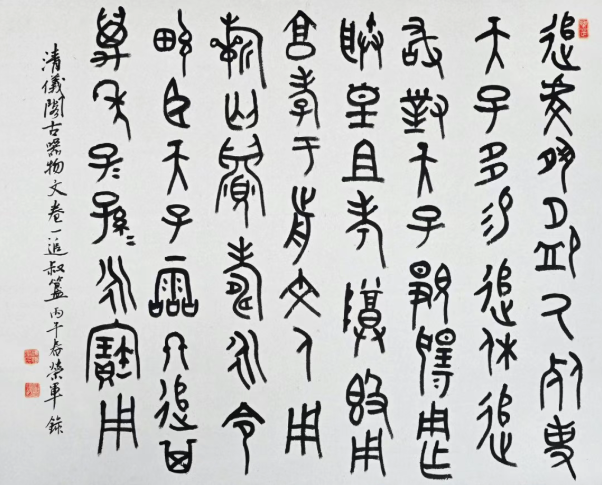 追虔夙夕卹氒死事
天子多易追休追
敢對天子覭揚用乍
朕皇且考尊簋用
享孝于前文人用
祈匄眉壽永令
畯臣天子霝冬追其
萬年子〻孫〻永寶用
清儀閣古器物文卷一追叔簋 丙午春榮軍錄